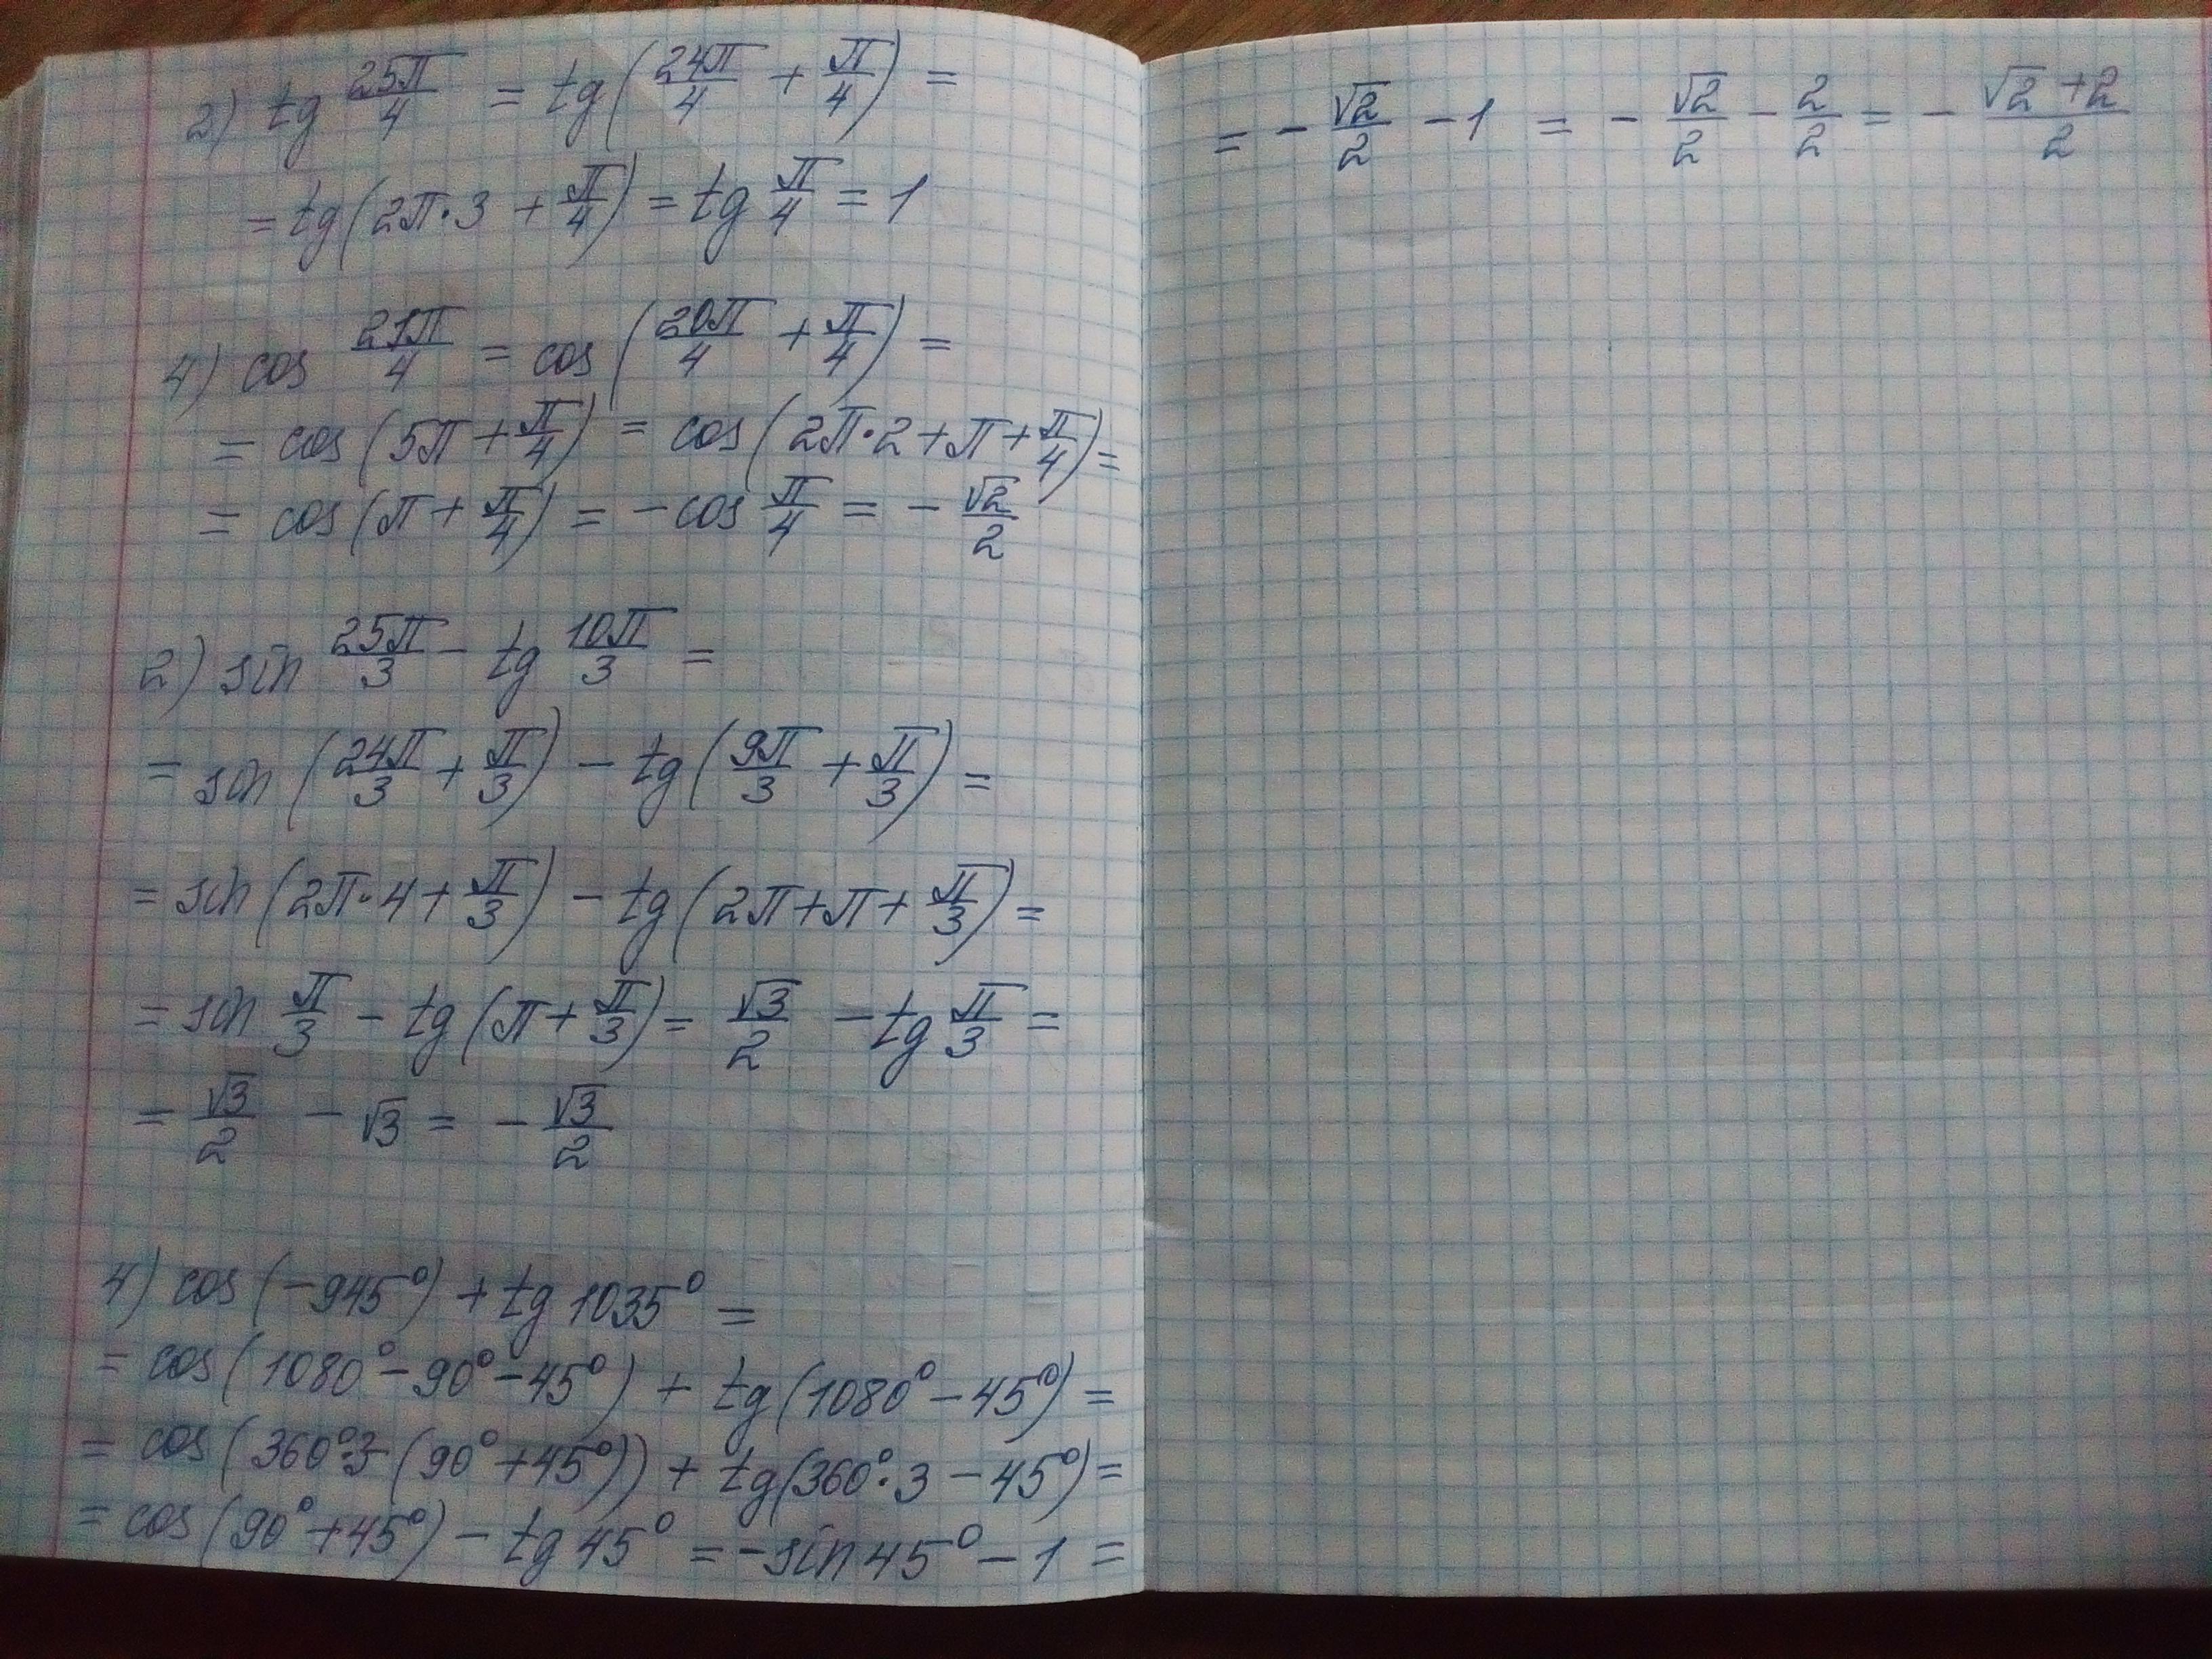 2) tg 25π/4 = tg(24π/4 + π/4) =
= tg(2π·3 + π/4) = tg π/4 = 1
4) cos 21π/4 = cos(20π/4 + π/4) =
= cos(5π + π/4) = cos(2π·2 + π + π/4) =
= cos(π + π/4) = -cos π/4 = - √2/2
2) sin 25π/3 - tg 10π/3 =
= sin(24π/3 + π/3) - tg(9π/3 + π/3) =
= sin(2π·4 + π/3) - tg(2π + π + π/3) =
= sin π/3 - tg(π + π/3) = √3/2 - tg π/3 =
= √3/2 - √3 = - √3/2
4) cos(-945°) + tg 1035° =
= cos(1080° - 90° - 45°) + tg(1080° - 45°) =
= cos(360°·3 - (90° + 45°)) + tg(360°·3 - 45°) =
= cos(90° + 45°) - tg 45° = -sin 45° - 1 =
= - √2/2 - 1 = - √2/2 - 2/2 = - (√2 + 2)/2